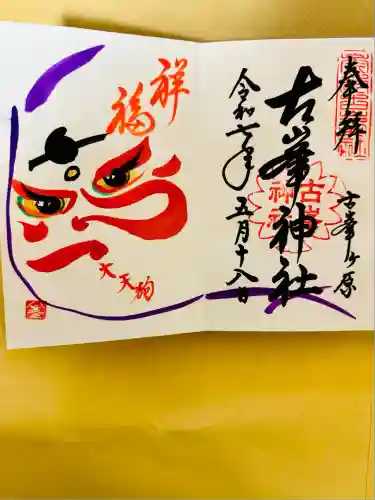 奉拝
古峯ヶ原
古峯神社
令和七年
五月十八日
祥
福
大天狗